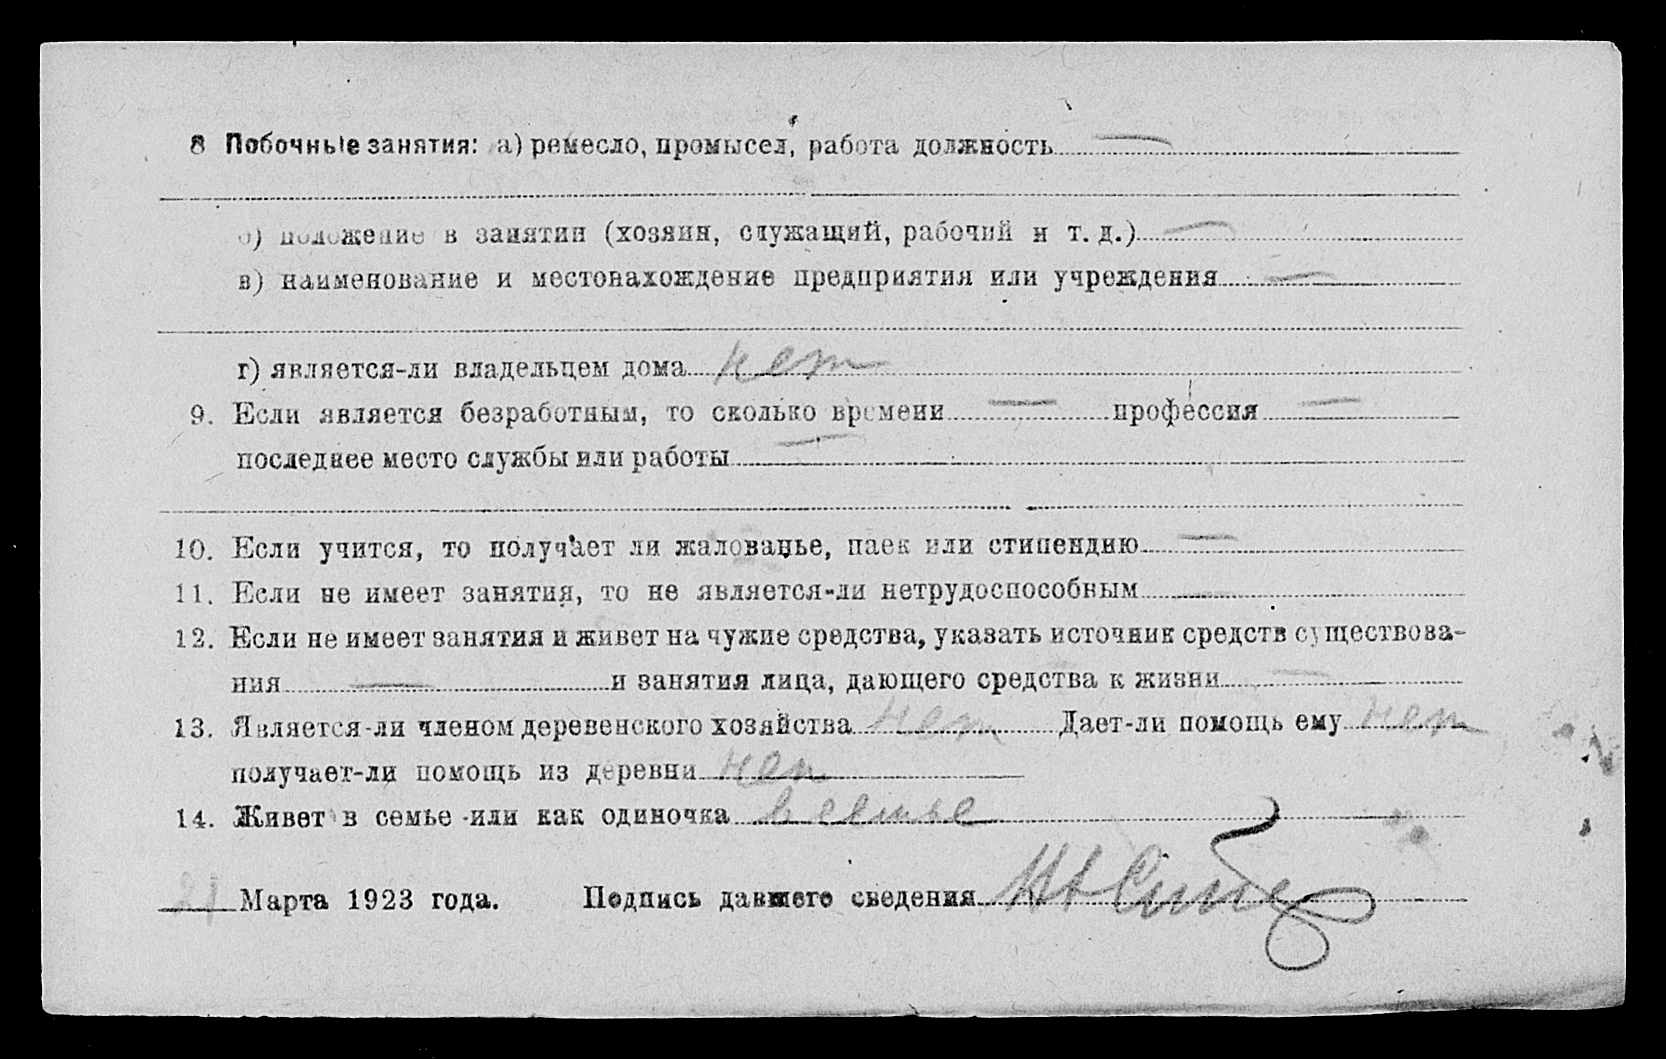 8 Побочные занятия: а) ремесло, промысел, работа должность —
б) положение в занятии (хозяин, служащий, рабочий и т. д.) —
в) наименование и местонахождение предприятия или учреждения —
г) является-ли владельцем дома нет
9. Если является безработным, то сколько времени — профессия —
последнее место службы или работы —
10. Если учится, то получает ли жалованье, паек или стипендию —
11. Если не имеет занятия, то не является-ли нетрудоспособным —
12. Если не имеет занятия и живет на чужие средства, указать источник средств существова-
ния — и занятия лица, дающего средства к жизни —
13. Является-ли членом деревенского хозяйства нет Дает-ли помощь ему нет
получает-ли помощь из деревни нет
14. Живет в семье или как одиночка в семье
21 Марта 1923 года. Подпись давшего сведения